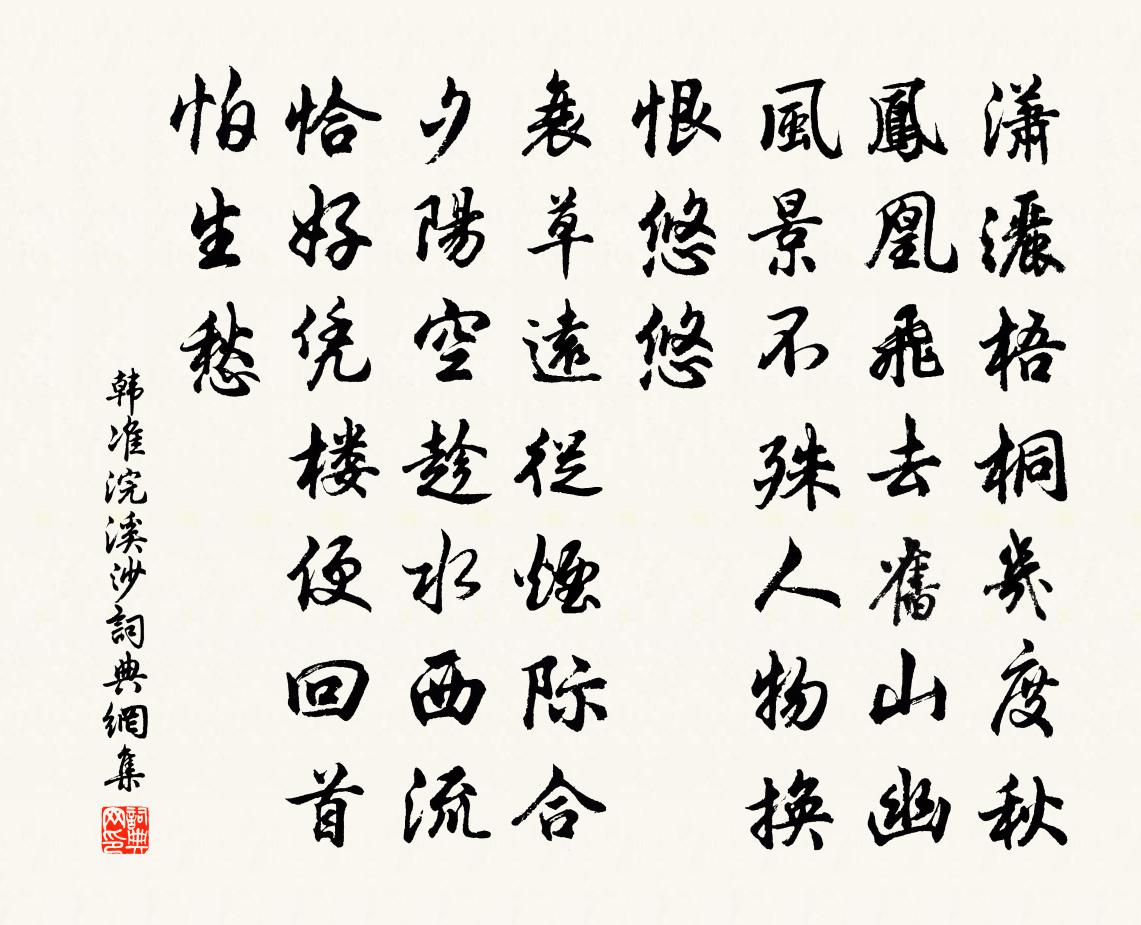 瀟灑梧桐幾度秋
鳳凰飛去舊山幽
風景不殊人物換
恨悠悠
衰草遠從煙际合
夕陽空趁水西流
恰好凭楼便回首
怕生愁
韩准浣溪沙詞典網集
詞典网印